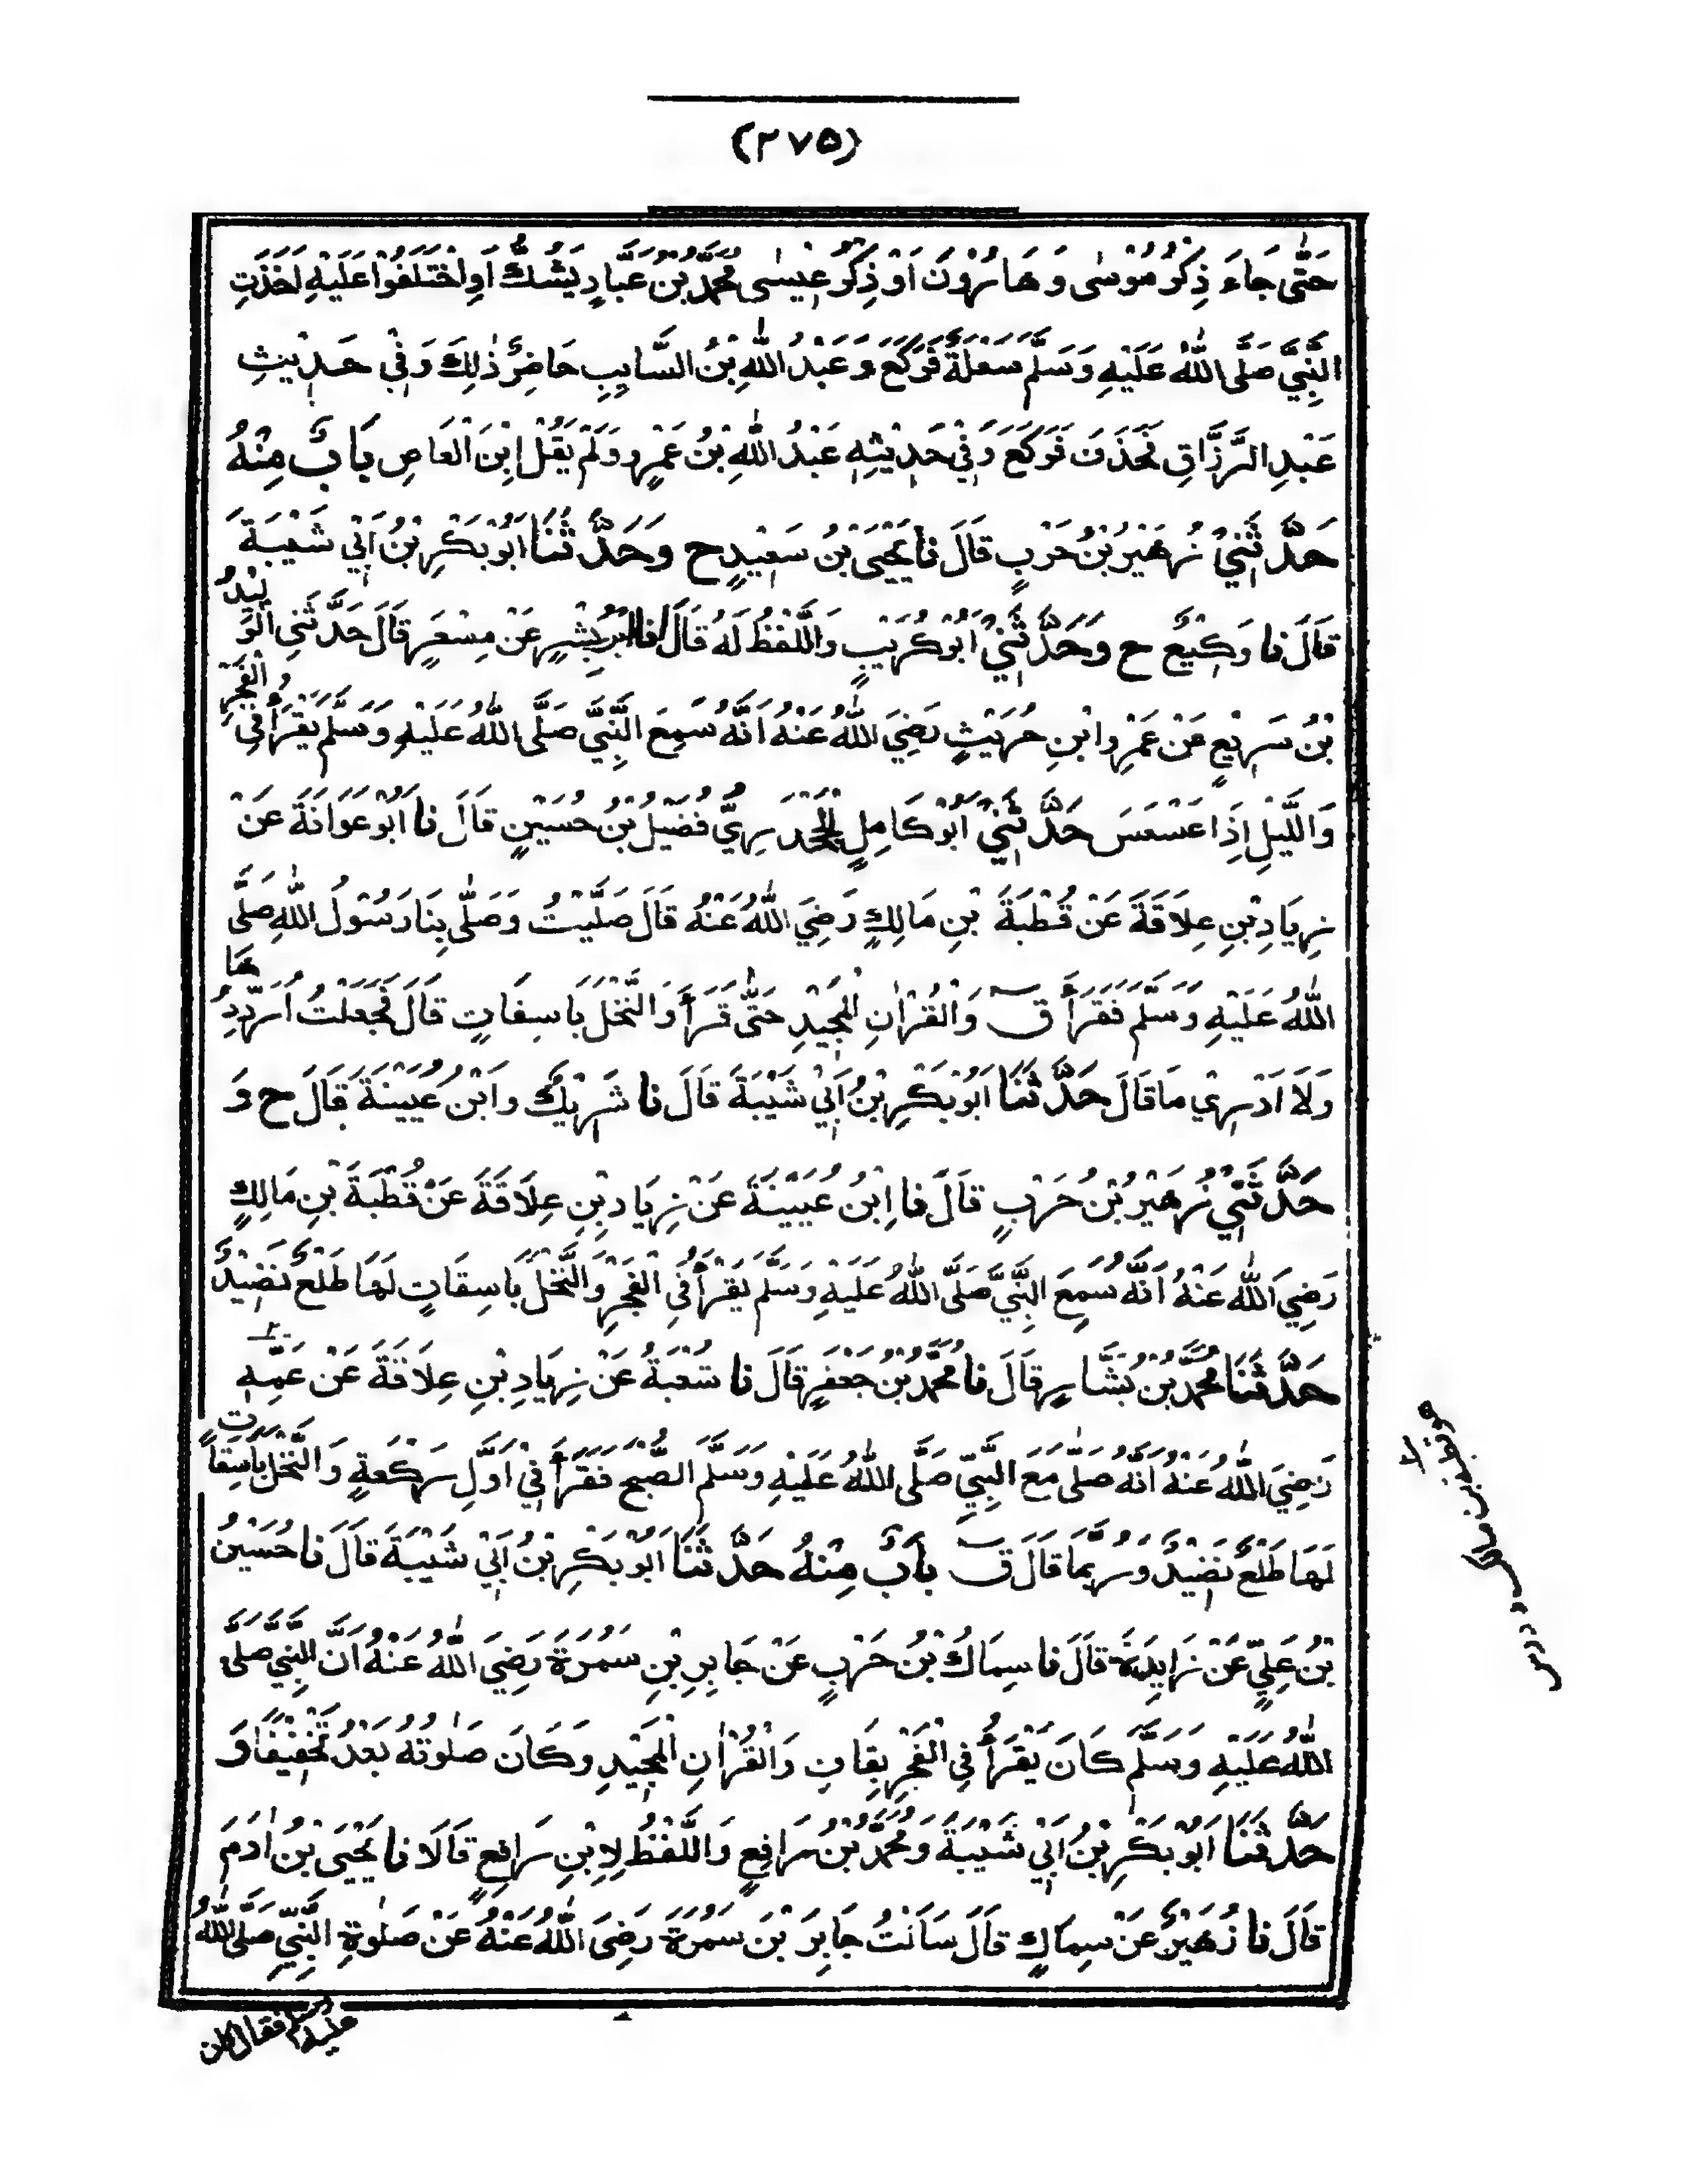 (٢٧٥)
حَتّٰى جَاءَ ذِكْرُ مُوْسٰى وَهَارُوْنَ اَوْ ذِكْرُ عِيْسٰى مُحَمَّدُ بْنُ عَبَّادٍ يَشُكُّ اَوِ اخْتَلَفُوْا عَلَيْهِ اَخَذَتِ
النَّبِيَّ صَلَّى اللّٰهُ عَلَيْهِ وَسَلَّمَ سَعْلَةٌ فَرَكَعَ وَعَبْدُ اللّٰهِ بْنُ السَّايِبِ حَاضِرٌ ذٰلِكَ وَفِيْ حَدِيْثِ
عَبْدِ الرَّزَّاقِ فَحَذَفَ فَرَكَعَ وَفِيْ حَدِيْثِهِ عَبْدُ اللّٰهِ بْنُ عَمْرٍو وَلَمْ يَقُلْ اِبْنَ الْعَاصِ بَابٌ مِنْهُ
حَدَّثَنِيْ زُهَيْرُ بْنُ حَرْبٍ قَالَ نا يَحْيَى بْنُ سَعِيْدٍ ح وَحَدَّثَنَا اَبُوْ بَكْرِ بْنُ اَبِيْ شَيْبَةَ
قَالَ نا وَكِيْعٌ ح وَحَدَّثَنِيْ اَبُوْ كُرَيْبٍ وَاللَّفْظُ لَهُ قَالَ انا ابْنُ بِشْرٍ عَنْ مِسْعَرٍ قَالَ حَدَّثَنِي الْوَلِيْدُ
بْنُ سَرِيْعٍ عَنْ عَمْرِو ابْنِ حُرَيْثٍ رَضِيَ اللّٰهُ عَنْهُ اَنَّهُ سَمِعَ النَّبِيَّ صَلَّى اللّٰهُ عَلَيْهِ وَسَلَّمَ يَقْرَأُ فِي الْفَجْرِ
وَاللَّيْلِ اِذَا عَسْعَسَ حَدَّثَنِيْ اَبُوْ كَامِلٍ الْجَحْدَرِيُّ فُضَيْلُ بْنُ حُسَيْنٍ قَالَ نا اَبُوْ عَوَانَةَ عَنْ
زِيَادِ بْنِ عِلَاقَةَ عَنْ قُطْبَةَ بْنِ مَالِكٍ رَضِيَ اللّٰهُ عَنْهُ قَالَ صَلَّيْتُ وَصَلّٰى بِنَا رَسُوْلُ اللّٰهِ صَلَّى
اللّٰهُ عَلَيْهِ وَسَلَّمَ فَقَرَأَ قٓ وَالْقُرْاٰنِ الْمَجِيْدِ حَتّٰى قَرَأَ وَالنَّخْلَ بَاسِقَاتٍ قَالَ فَجَعَلْتُ اُرَدِّدُهَا
وَلَا اَدْرِيْ مَا قَالَ حَدَّثَنَا اَبُوْ بَكْرِ بْنُ اَبِيْ شَيْبَةَ قَالَ نا شَرِيْكٌ وَابْنُ عُيَيْنَةَ قَالَ ح وَ
حَدَّثَنِيْ زُهَيْرُ بْنُ حَرْبٍ قَالَ نا اِبْنُ عُيَيْنَةَ عَنْ زِيَادِ بْنِ عِلَاقَةَ عَنْ قُطْبَةَ بْنِ مَالِكٍ
رَضِيَ اللّٰهُ عَنْهُ اَنَّهُ سَمِعَ النَّبِيَّ صَلَّى اللّٰهُ عَلَيْهِ وَسَلَّمَ يَقْرَأُ فِي الْفَجْرِ وَالنَّخْلَ بَاسِقَاتٍ لَهَا طَلْعٌ نَضِيْدٌ
حَدَّثَنَا مُحَمَّدُ بْنُ بَشَّارٍ قَالَ نا مُحَمَّدُ بْنُ جَعْفَرٍ قَالَ نا شُعْبَةُ عَنْ زِيَادِ بْنِ عِلَاقَةَ عَنْ عَمِّهِ
رَضِيَ اللّٰهُ عَنْهُ اَنَّهُ صَلّٰى مَعَ النَّبِيِّ صَلَّى اللّٰهُ عَلَيْهِ وَسَلَّمَ الصُّبْحَ فَقَرَأَ فِيْ اَوَّلِ رَكْعَةٍ وَالنَّخْلَ بَاسِقَاتٍ
لَهَا طَلْعٌ نَضِيْدٌ وَرُبَّمَا قَالَ قٓ بَابٌ مِنْهُ حَدَّثَنَا اَبُوْ بَكْرِ بْنُ اَبِيْ شَيْبَةَ قَالَ نا حُسَيْنُ
بْنُ عَلِيٍّ عَنْ زَايِدَةَ قَالَ نا سِمَاكُ بْنُ حَرْبٍ عَنْ جَابِرِ بْنِ سَمُرَةَ رَضِيَ اللّٰهُ عَنْهُ اَنَّ النَّبِيَّ صَلَّى
اللّٰهُ عَلَيْهِ وَسَلَّمَ كَانَ يَقْرَأُ فِي الْفَجْرِ بِقَافِ وَالْقُرْاٰنِ الْمَجِيْدِ وَكَانَ صَلٰوتُهُ بَعْدُ تَخْفِيْفًا وَ
حَدَّثَنَا اَبُوْ بَكْرِ بْنُ اَبِيْ شَيْبَةَ وَمُحَمَّدُ بْنُ رَافِعٍ وَاللَّفْظُ لِاِبْنِ رَافِعٍ قَالَا نا يَحْيَى بْنُ اٰدَمَ
قَالَ نا زُهَيْرٌ عَنْ سِمَاكٍ قَالَ سَاَلْتُ جَابِرَ بْنَ سَمُرَةَ رَضِيَ اللّٰهُ عَنْهُ عَنْ صَلٰوةِ النَّبِيِّ صَلَّى اللّٰهُ
عليه وسلم فقال كان
هو قطبة بن مالك